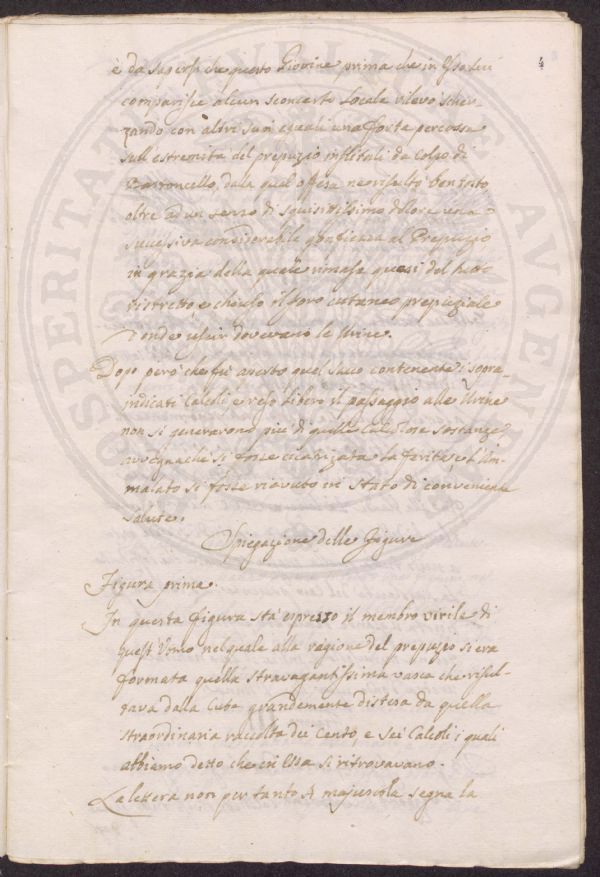 4
è da sapersi che questo Giovine prima che in Esso Lui
comparisse alcun sconcerto Locale rilevò scher-
zando con altri suoi eguali una forte percossa
sull'estremità del prepuzio inflitali da colpo di
Bastoncello, dalla qual offesa ne risultò ben tosto
oltre ad un senso di squisitissimo dolore una
successiva considerabile gonfiezza al Prepuzio
in grazia della quale rimase quasi del tutto
ristretto, e chiuso il foro cutaneo prepuziale
d'onde uscir dovevano le Urine.
Dopo però che fù aperto quel Sacco contenente i sopra-
indicati Calcoli, e reso libero il passaggio alle Urine
non si generarono più di quelle Calcolose sostanze
avvegnachè si fosse cicatrizata la ferita, e l'Am-
malato si fosse riavuto in stato di conveniente
salute.
Spiegazione delle Figure
Figura prima.
In questa figura stà espresso il membro virile di
quest'Uomo nel quale alla ragione del prepuzio si era
formata quella stravagantissima vasca che risul-
tava dalla Cute grandemente distesa da quella
straordinaria raccolta dei Cento, e Sei Calcoli i quali
abbiamo detto che in Essa si ritrovavano.
La lettera non per tanto A majuscola segna la
PROSPERITATI VELLICAE AVGENDAE